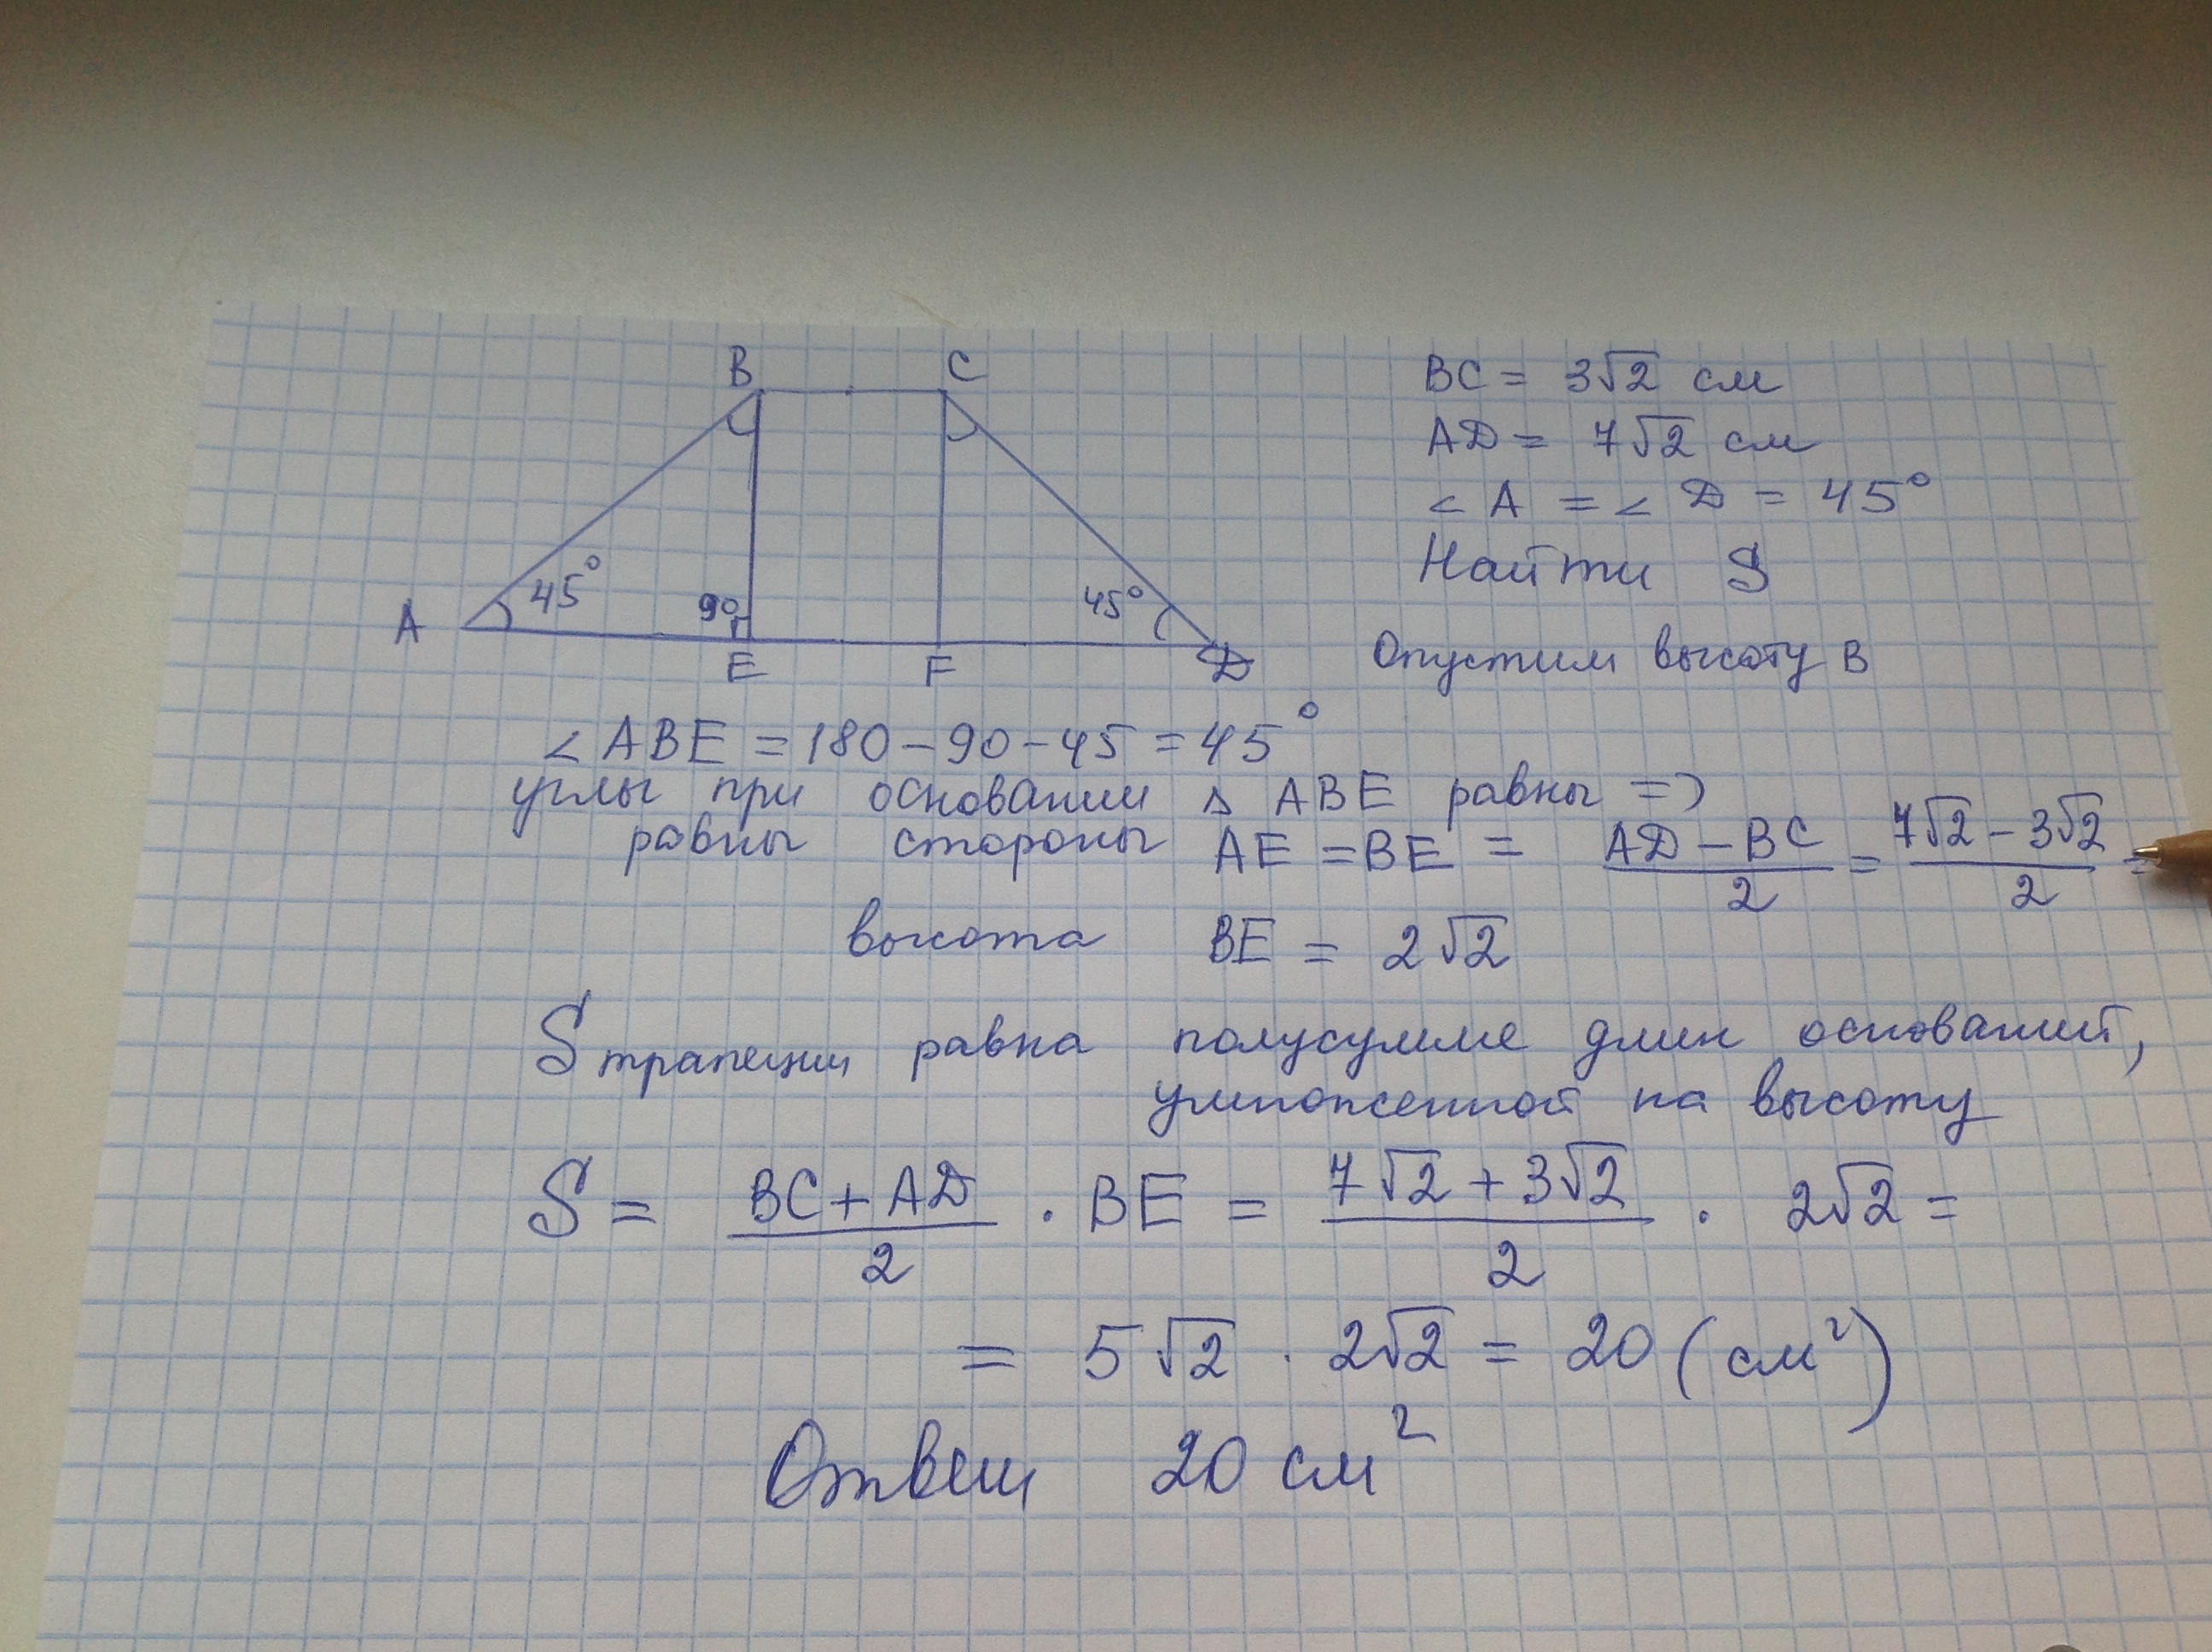 B C
BC = 3√2 см
AD = 7√2 см
∠ A = ∠ D = 45°
Найти S
A 45° 90 45°
E F D
Опустим высоту В
∠ ABE = 180 - 90 - 45 = 45°
углы при основании Δ ABE равны =>
равны стороны AE = BE = (AD - BC)/2 = (7√2 - 3√2)/2 =
высота BE = 2√2
S трапеции равна полусумме длин оснований,
умноженной на высоту
S = (BC + AD)/2 · BE = (7√2 + 3√2)/2 · 2√2 =
= 5√2 · 2√2 = 20 (см²)
Ответ 20 см²